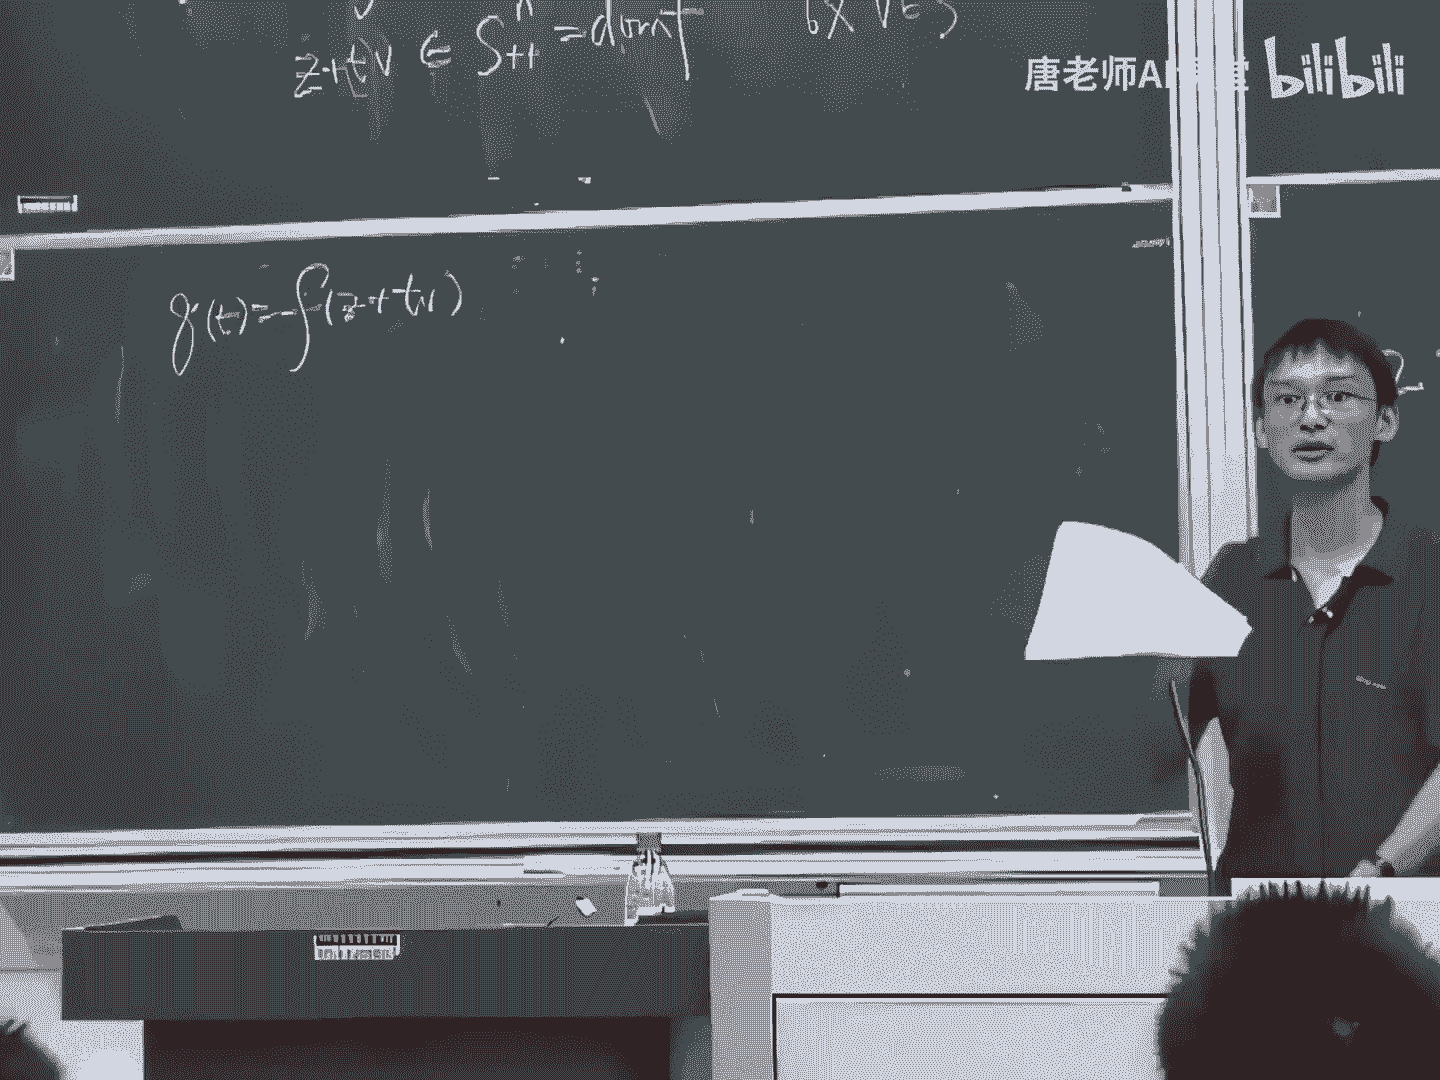 z+tv ∈ S^n_{++} = dom f
唐老师AI bilibili
g(t)=-f(z+tv)